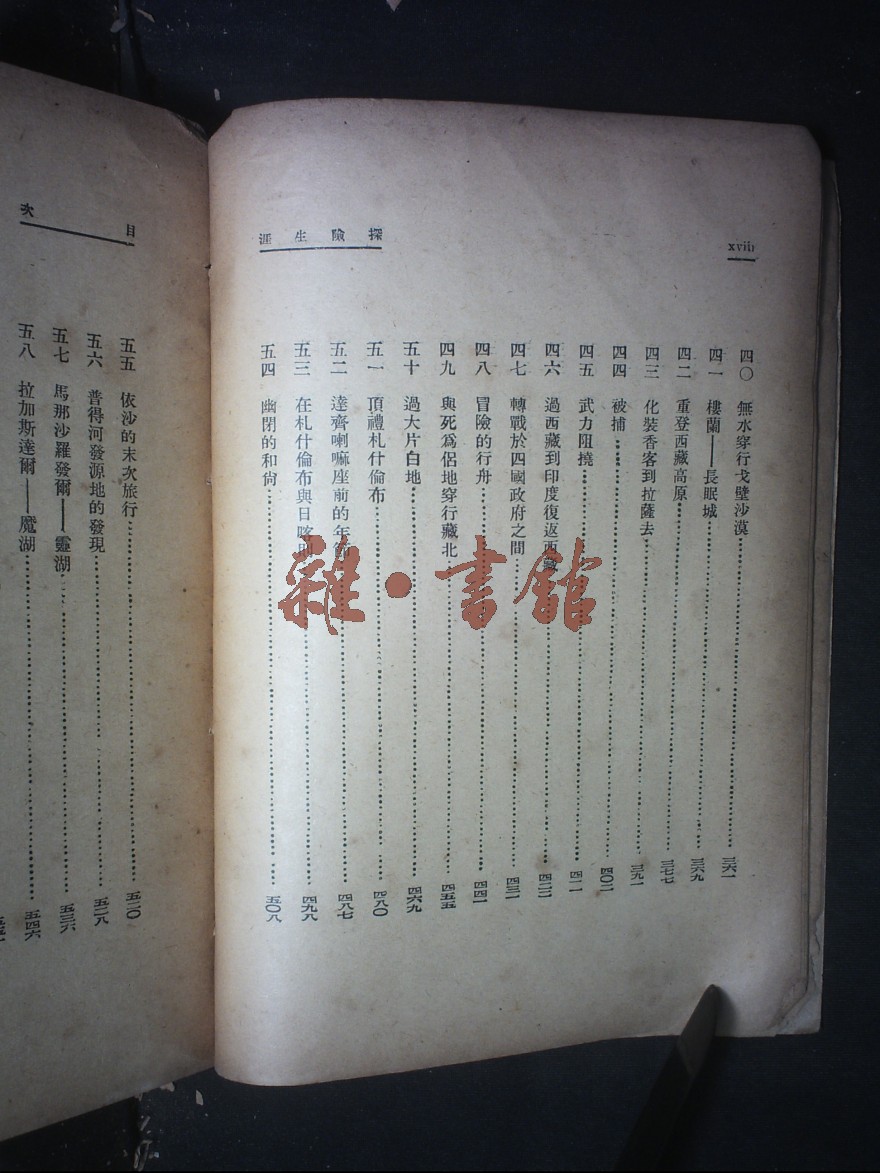 xviii
探險生涯
四〇 無水穿行戈壁沙漠 三六一
四一 樓蘭——長眠城 三六九
四二 重登西藏高原 三七七
四三 化裝香客到拉薩去 三九一
四四 被捕 四〇二
四五 武力阻撓 四一一
四六 過西藏到印度復返西藏 四二二
四七 轉戰於四國政府之間 四三一
四八 冒險的行舟 四四一
四九 與死爲侶地穿行藏北 四五五
五十 過大片白地 四六九
五一 頂禮札什倫布 四八〇
五二 達齊喇嘛座前的年節 四八七
五三 在札什倫布與日喀則 四九八
五四 幽閉的和尙 五〇八
目次
五五 依沙的末次旅行 五二〇
五六 普得河發源地的發現 五二八
五七 馬那沙羅發爾——靈湖 五三六
五八 拉加斯達爾——魔湖 五四六
雜·書館